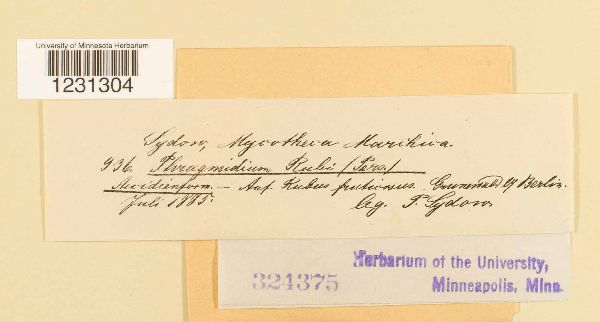 University of Minnesota Herbarium
1231304
Sydow, Mycotheca Marchica.
936. Phragmidium Rubi (Pers.)
Aecidienform. — Auf Rubus fruticosus. Grunewald b/ Berlin.
Juli 1885. leg. P. Sydow.
324375
Herbarium of the University,
Minneapolis, Minn.